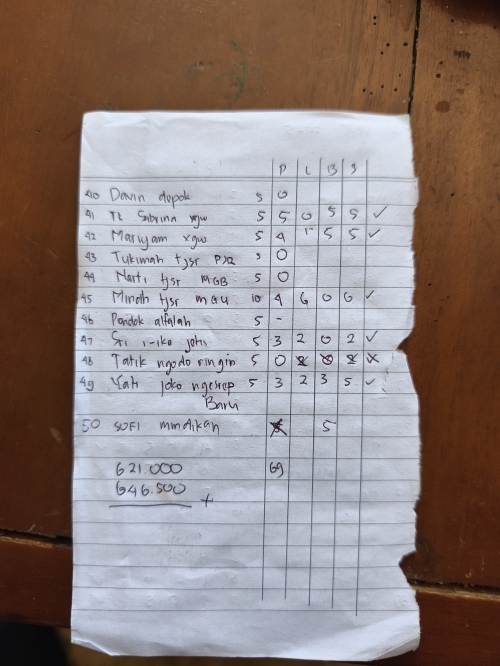 P L B S
40 Devin depok 5 0
41 Tt Sabrina xgw 5 5 0 5 5 ✓
42 Maryam xgw 5 4 1 5 5 ✓
43 Tukimah tjsr PJR 5 0
44 Narti tjsr MGB 5 0
45 Mindh tjsr MGU 10 4 6 0 6 ✓
46 Pondok alfalah 5 -
47 Sri joko 5 3 2 0 2 ✓
48 Tatik ngodo ringin 5 0
49 Yati joko ngesrep 5 3 2 3 5 ✓
Baru
50 SOFI mndikan 5
621.000 69
646.500 +